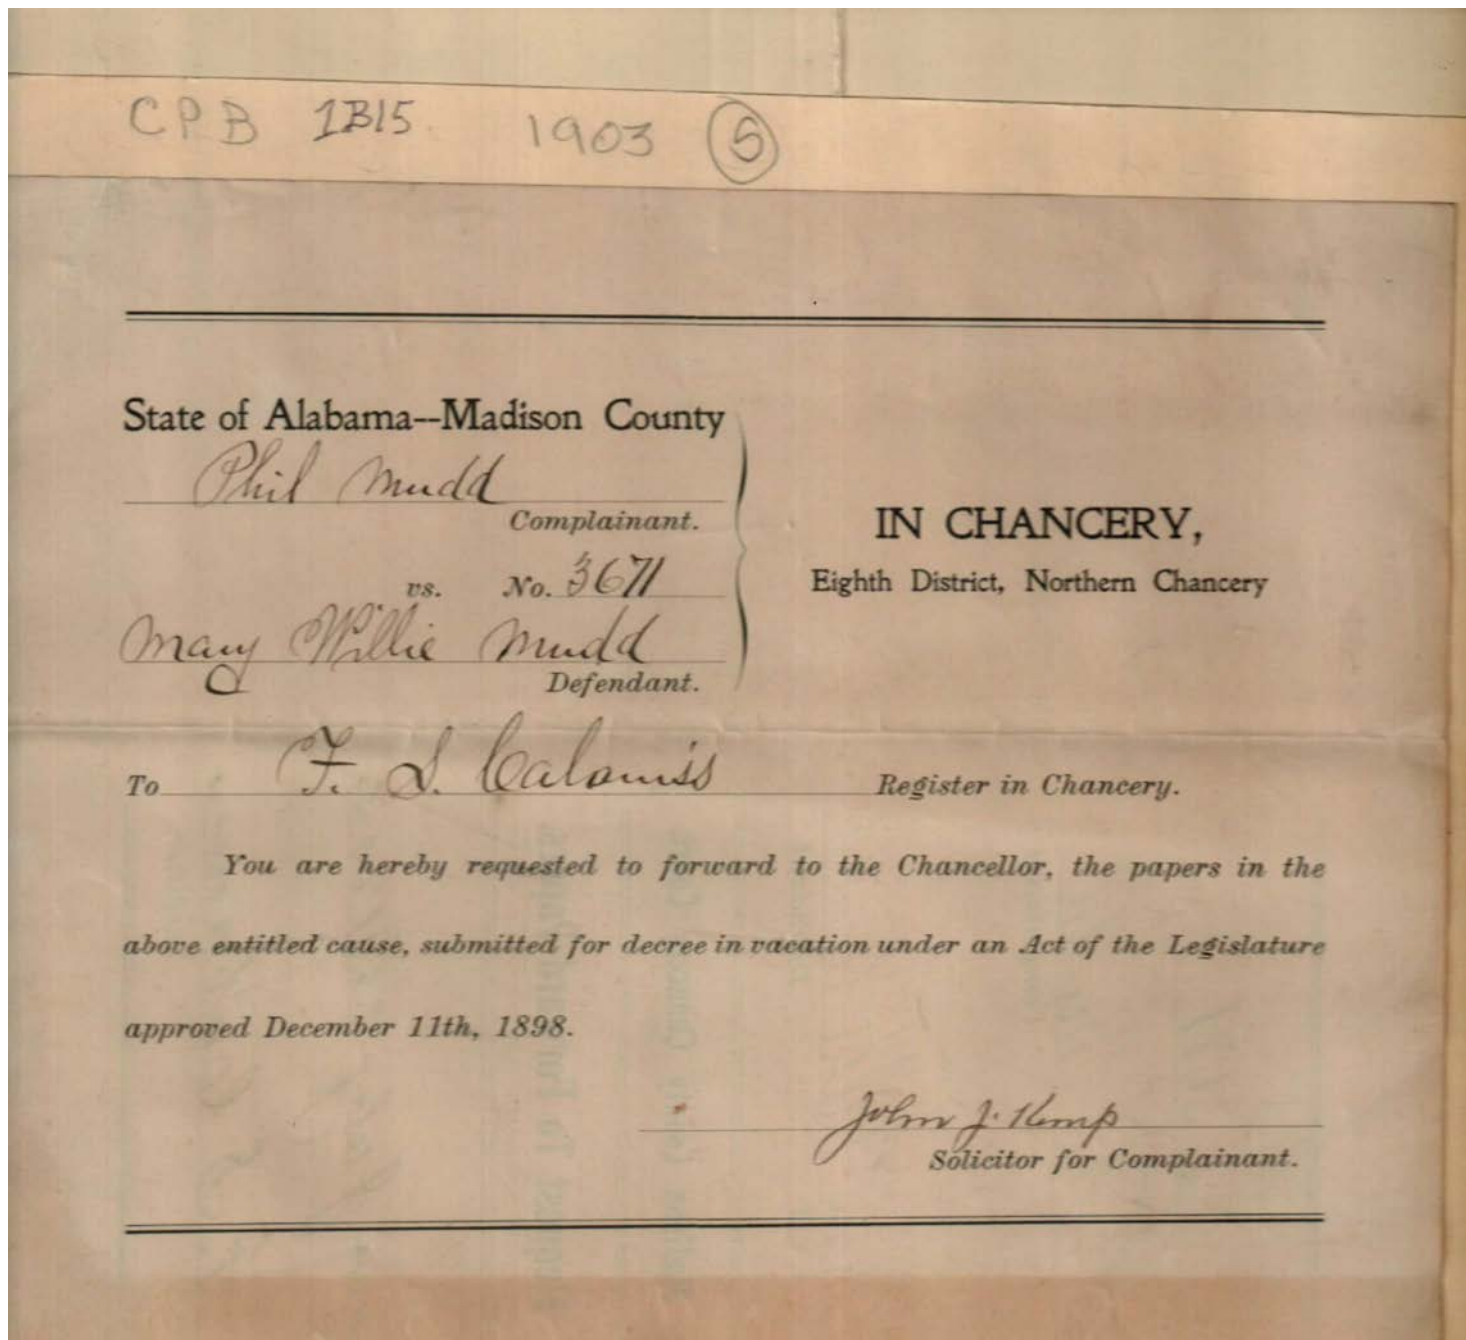 CPB 1B15 1903 S
State of Alabama--Madison County
Phil Mudd
Complainant.
IN CHANCERY,
vs. No. 3671
Eighth District, Northern Chancery
Mary Willie Mudd
Defendant.
To F. S. Register in Chancery.
You are hereby requested to forward to the Chancellor, the papers in the
above entitled cause, submitted for decree in vacation under an Act of the Legislature
approved December 11th, 1898.
John J. Kemp
Solicitor for Complainant.